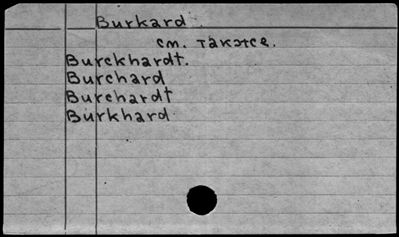 Burkard.
см. также.
Burckhardt.
Burchard
Burchardt
Burkhard